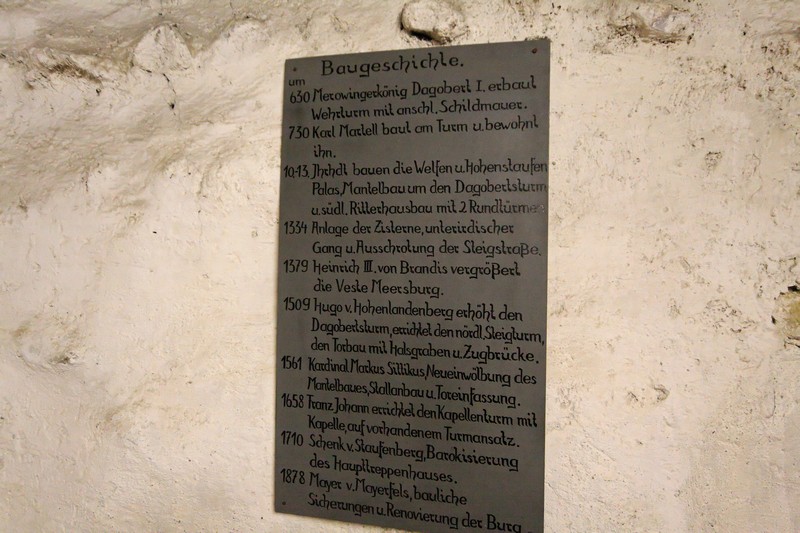 Baugeschichte.
um
630 Merowingerkönig Dagobert I. erbaut
Wehrturm mit anschl. Schildmauer.
730 Karl Martell baut am Turm u. bewohnt
ihn.
10.-13. Jhrhdt bauen die Welfen u. Hohenstaufen
Palas, Mantelbau um den Dagobertsturm
u. südl. Ritterhausbau mit 2 Rundtürmen
1334 Anlage der Zisterne, unterirdischer
Gang u. Ausschrotung der Steigstraße.
1379 Heinrich III. von Brandis vergrößert
die Veste Meersburg.
1509 Hugo v. Hohenlandenberg erhöht den
Dagobertsturm, errichtet den nördl. Steigturm,
den Torbau mit Halsgraben u. Zugbrücke.
1561 Kardinal Markus Sittikus, Neueinwölbung des
Mantelbaues, Stallanbau u. Toreinfassung.
1658 Franz Johann errichtet den Kapellenturm mit
Kapelle, auf vorhandenem Turmansatz.
1710 Schenk v. Staufenberg, Barokisierung
des Haupttreppenhauses.
1878 Mayer v. Mayerfels, bauliche
Sicherungen u. Renovierung der Burg